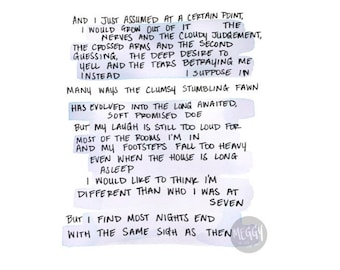 AND I JUST ASSUMED AT A CERTAIN POINT,
I WOULD GROW OUT OF IT THE
NERVES AND THE CLOUDY JUDGEMENT,
THE CROSSED ARMS AND THE SECOND
GUESSING, THE DEEP DESIRE TO
YELL AND THE TEARS BETRAYING ME
INSTEAD I SUPPOSE IN
MANY WAYS THE CLUMSY STUMBLING FAWN
HAS EVOLVED INTO THE LONG AWAITED,
SOFT PROMISED DOE
BUT MY LAUGH IS STILL TOO LOUD FOR
MOST OF THE ROOMS I'M IN
AND MY FOOTSTEPS FALL TOO HEAVY
EVEN WHEN THE HOUSE IS LONG
ASLEEP
I WOULD LIKE TO THINK I'M
DIFFERENT THAN WHO I WAS AT
SEVEN
BUT I FIND MOST NIGHTS END
WITH THE SAME SIGH AS THEN
MEGGY